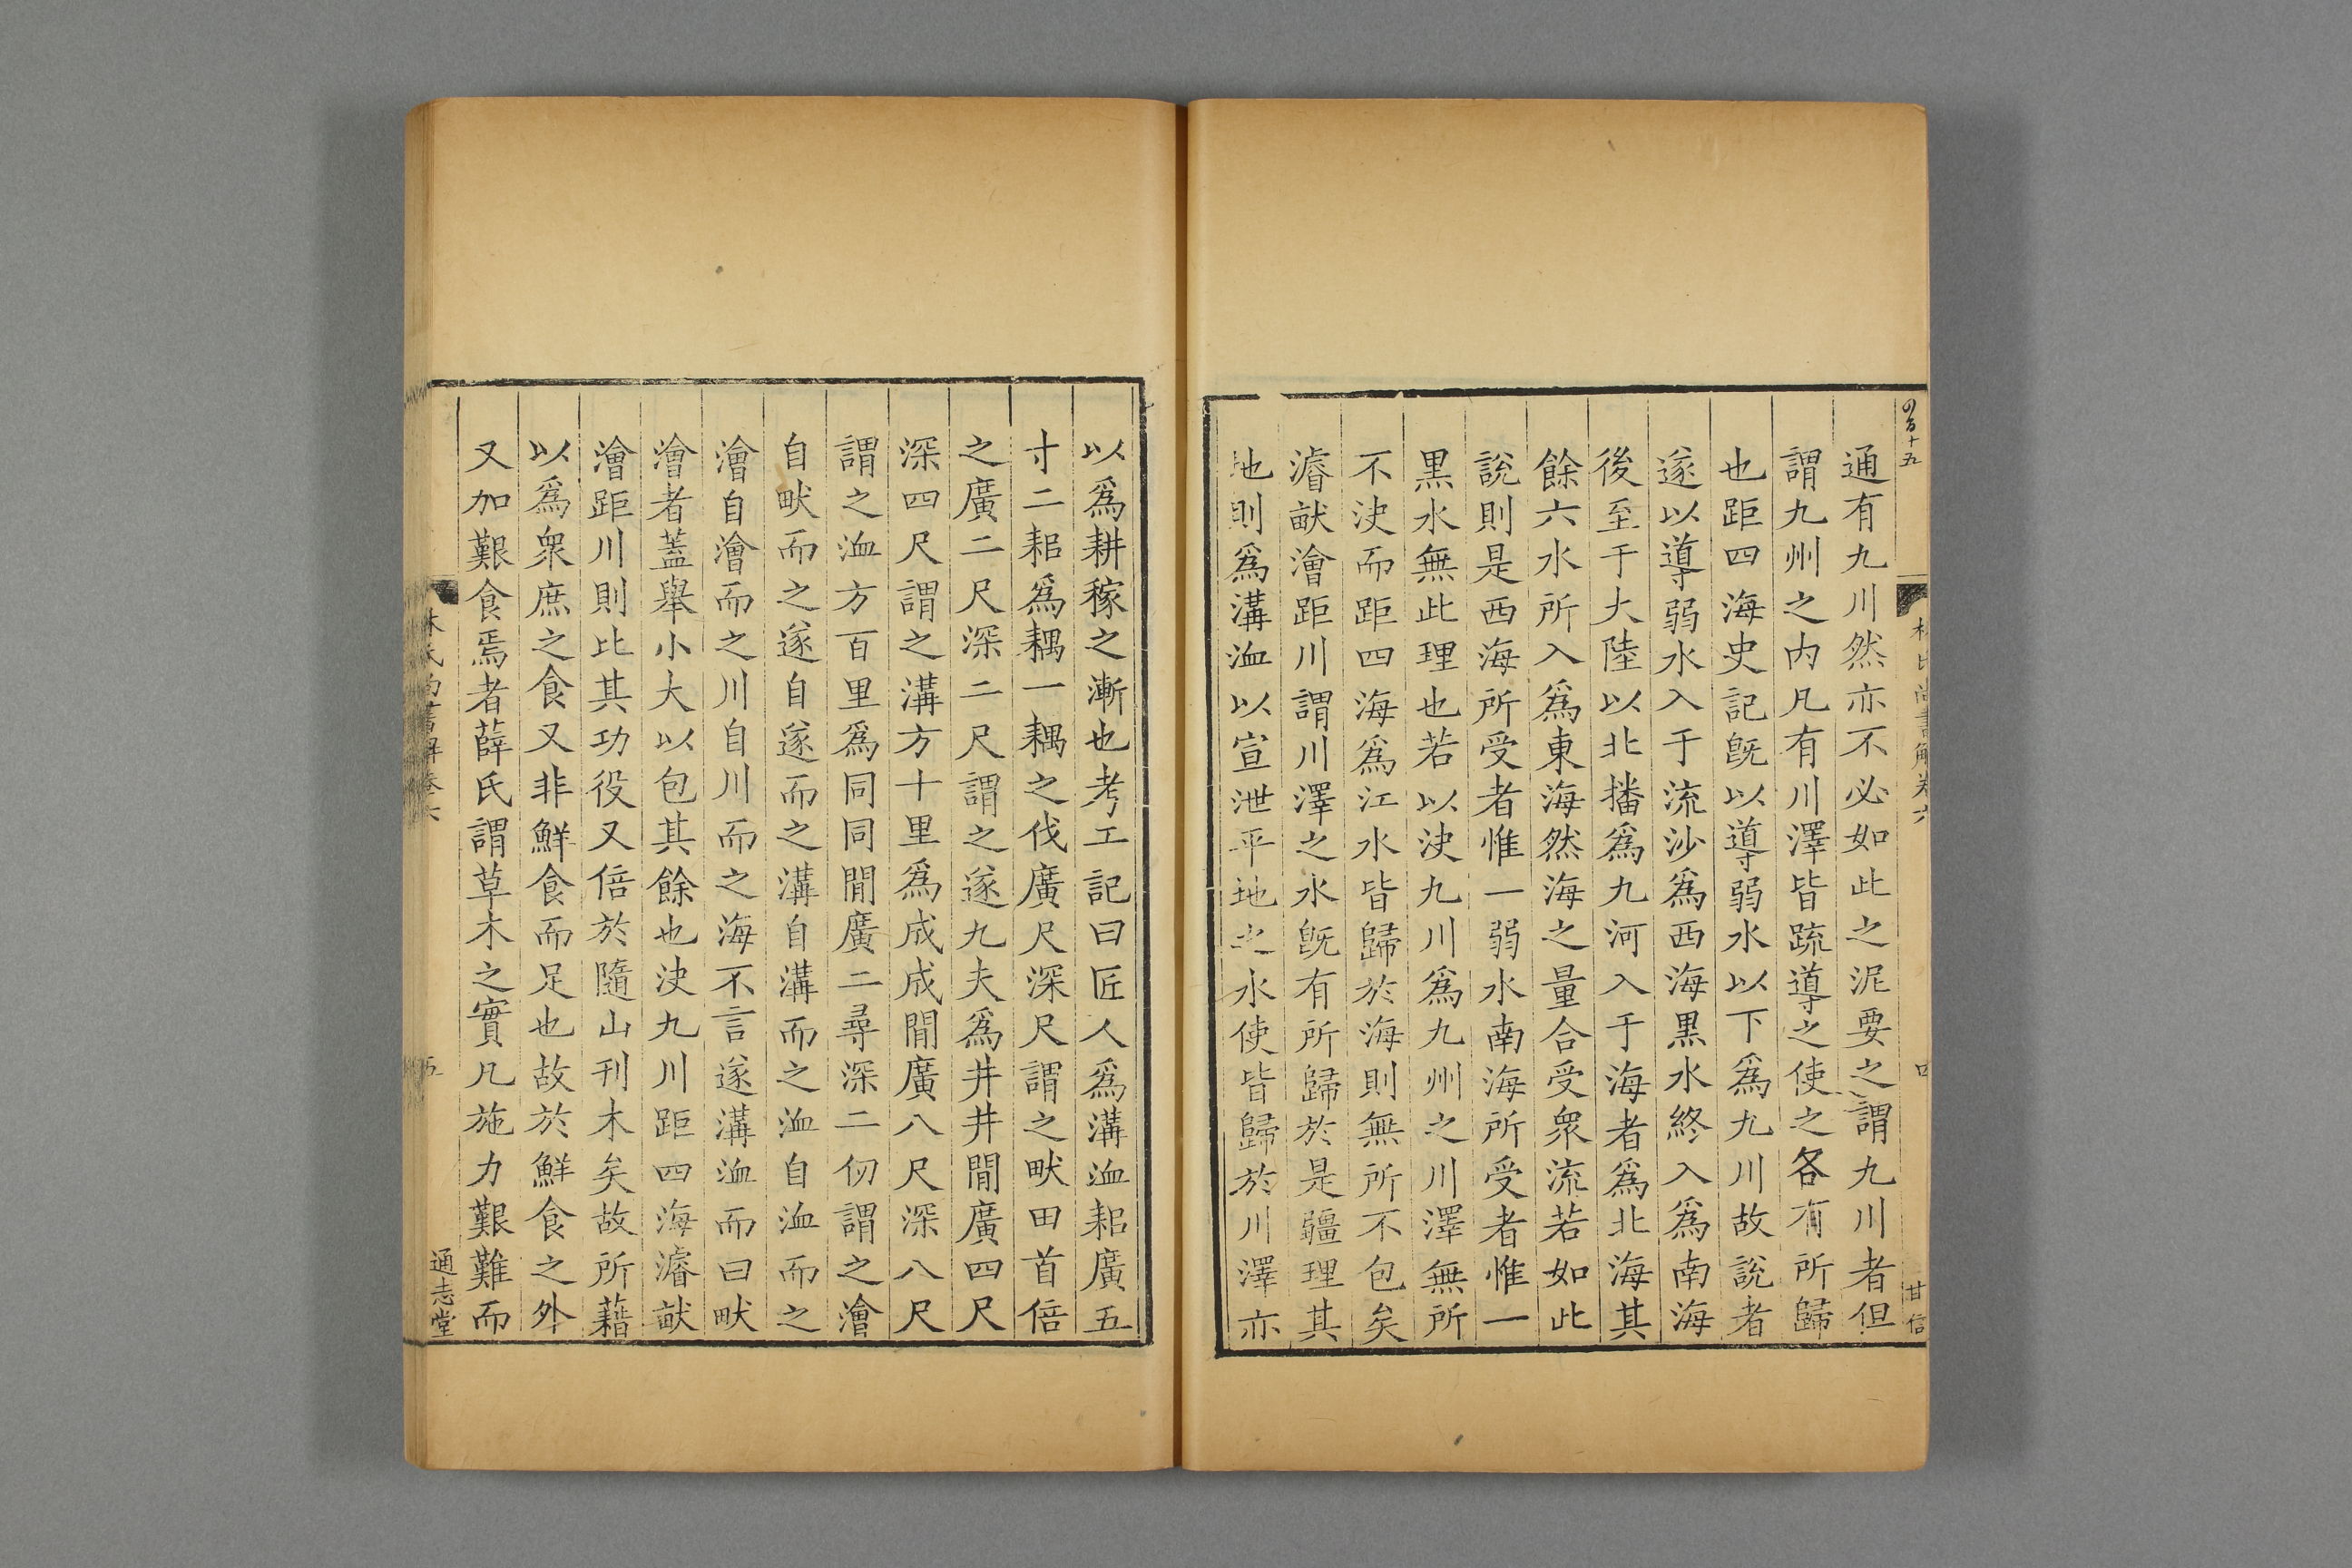 通有九川然亦不必如此之泥要之謂九川者但
謂九州之內凡有川澤皆疏導之使之各有所歸
也距四海史記旣以導弱水以下爲九川故說者
遂以導弱水入于流沙爲西海黑水終入爲南海
後至于大陸以北播爲九河入于海者爲北海其
餘六水所入爲東海然海之量合受衆流若如此
說則是西海所受者惟一弱水南海所受者惟一
黑水無此理也若以決九川爲九州之川澤無所
不決而距四海爲江水皆歸於海則無所不包矣
濬畎澮距川謂川澤之水旣有所歸於是疆理其
地則爲溝洫以宣泄平地之水使皆歸於川澤亦
甘信
以爲耕稼之漸也考工記曰匠人爲溝洫耜廣五
寸二耜爲耦一耦之伐廣尺深尺謂之畎田首倍
之廣二尺深二尺謂之遂九夫爲井井間廣四尺
深四尺謂之溝方十里爲成成間廣八尺深八尺
謂之洫方百里爲同同間廣二尋深二仞謂之澮
自畎而之遂自遂而之溝自溝而之洫自洫而之
澮自澮而之川自川而之海不言遂溝洫而曰畎
澮者蓋舉小大以包其餘也決九川距四海濬畎
澮距川則比其功役又倍於隨山刊木矣故所藉
以爲衆庶之食又非鮮食而足也故於鮮食之外
又加艱食焉者薛氏謂草木之實凡施力艱難而
通志堂